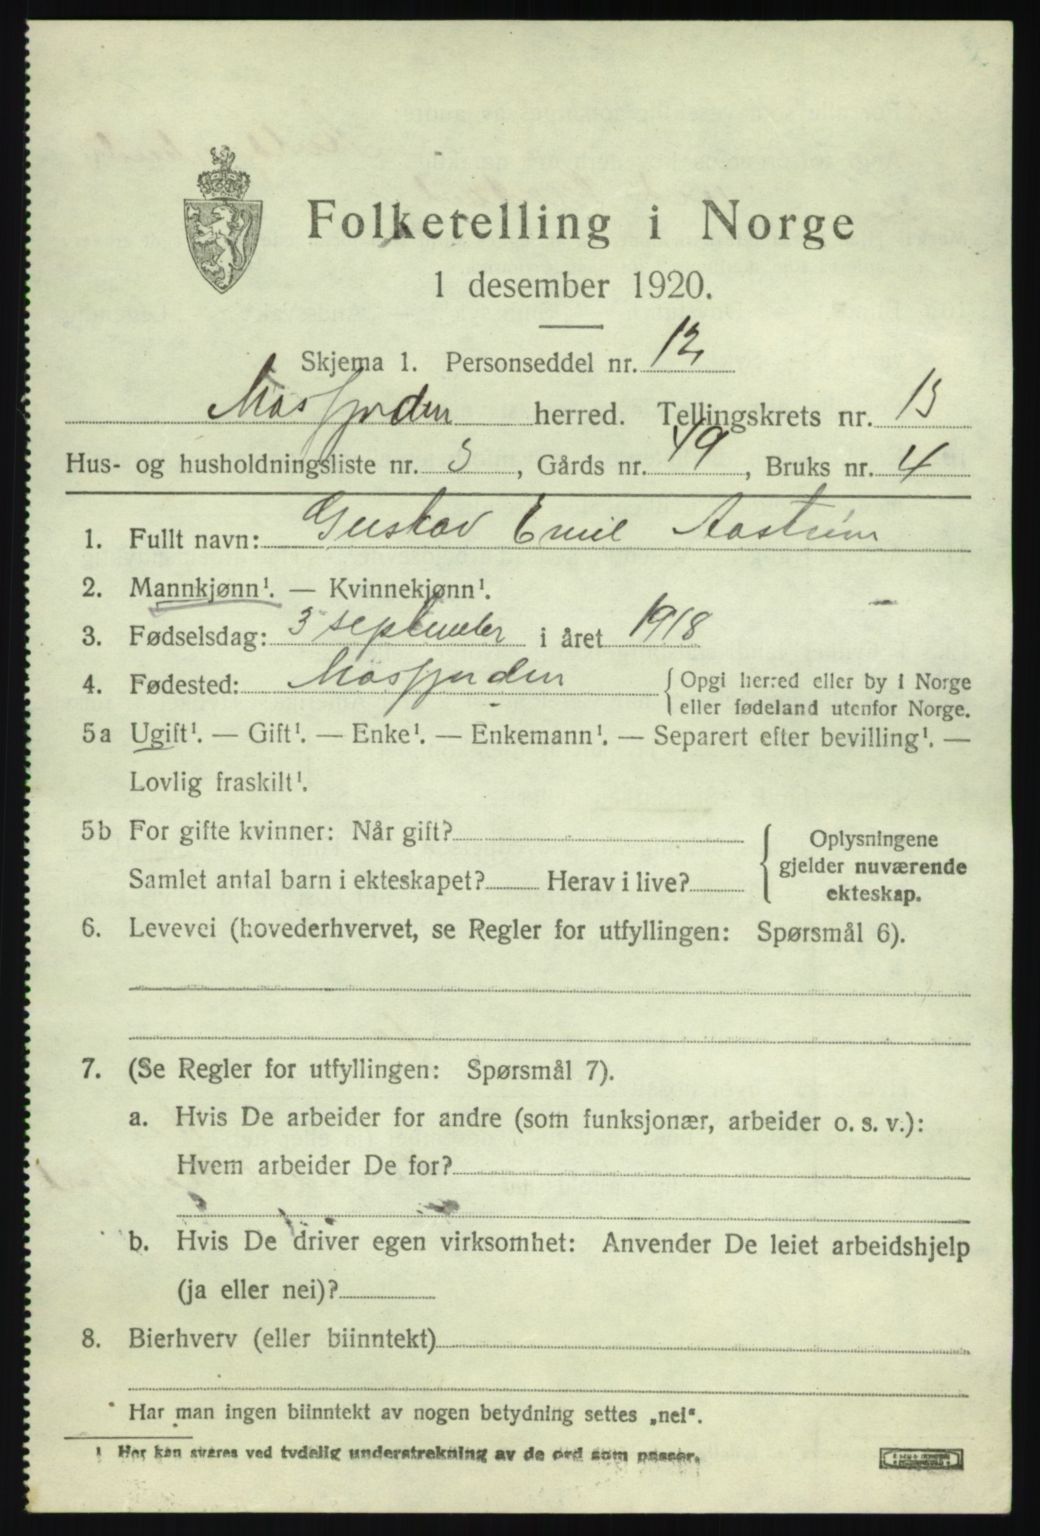 Folketelling i Norge
1 desember 1920.
Skjema 1. Personseddel nr. 12
Måsfjorden herred. Tellingskrets nr. 13
Hus- og husholdningsliste nr. 3, Gårds nr. 49, Bruks nr. 4
1. Fullt navn: Gustav Emil Aastrøm
2. Mannkjønn¹. — Kvinnekjønn¹.
3. Fødselsdag: 3 september i året 1918
4. Fødested: Måsfjorden { Opgi herred eller by i Norge
eller fødeland utenfor Norge.
5a Ugift¹. — Gift¹. — Enke¹. — Enkemann¹. — Separert efter bevilling¹. —
Lovlig fraskilt¹.
5b For gifte kvinner: Når gift?
Samlet antal barn i ekteskapet? Herav i live?
Oplysningene
gjelder nuværende
ekteskap.
6. Levevei (hovederhvervet, se Regler for utfyllingen: Spørsmål 6).
7. (Se Regler for utfyllingen: Spørsmål 7).
a. Hvis De arbeider for andre (som funksjonær, arbeider o. s. v.):
Hvem arbeider De for?
b. Hvis De driver egen virksomhet: Anvender De leiet arbeidshjelp
(ja eller nei)?
8. Bierhverv (eller biinntekt)
Har man ingen biinntekt av nogen betydning settes „nei“.
¹ Her kan svares ved tydelig understrekning av de ord som passer.